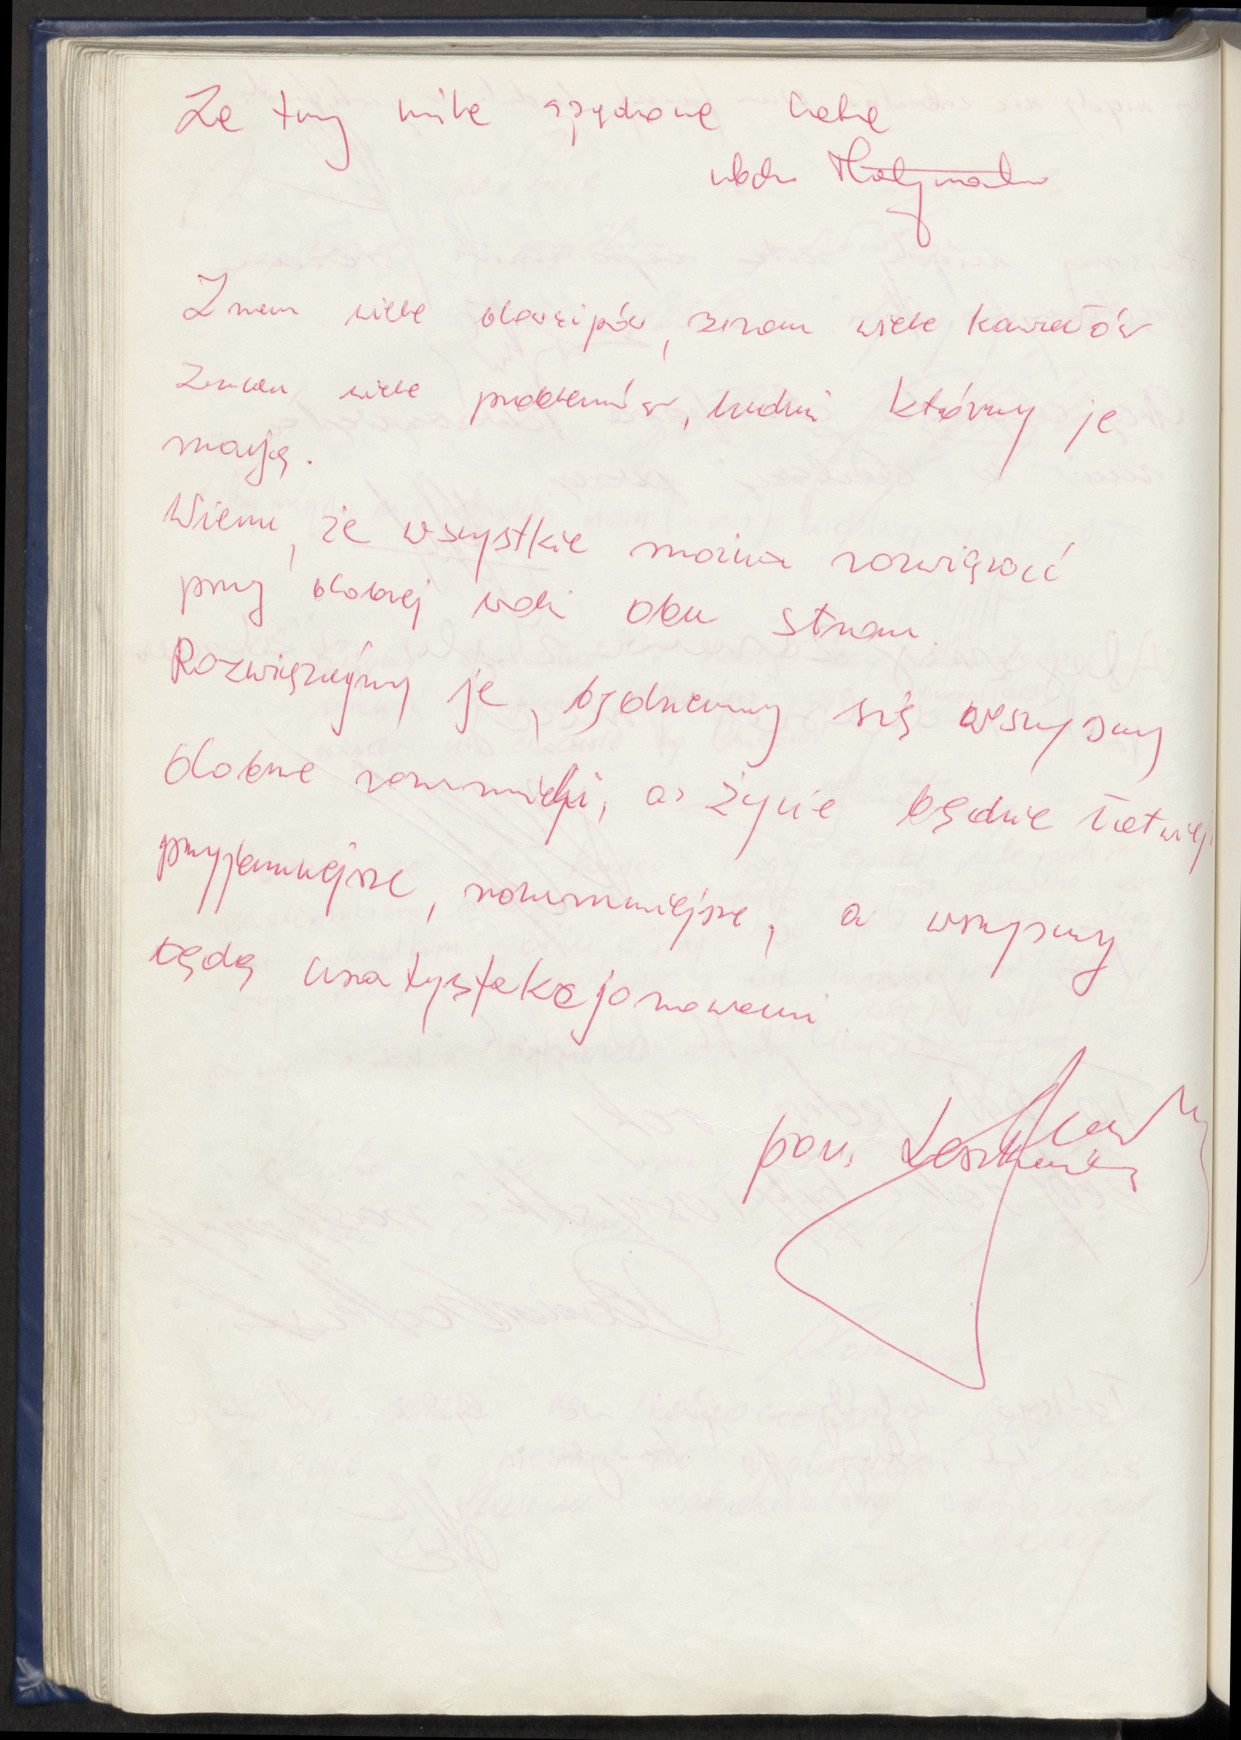 Za trzy miłe spędzone lata
Znam wiele dowcipów, znam wiele kawałów
Znam wiele problemów, ludzi którzy je
mają.
Wiem, że wszystkie można rozwiązać
przy dobrej woli obu stron.
Rozwiązujmy je, będziemy się wszyscy
dobrze rozumieli, a życie będzie łatwiej
przyjemniejsze, rozumniejsze, a wszyscy
będą usatysfakcjonowani